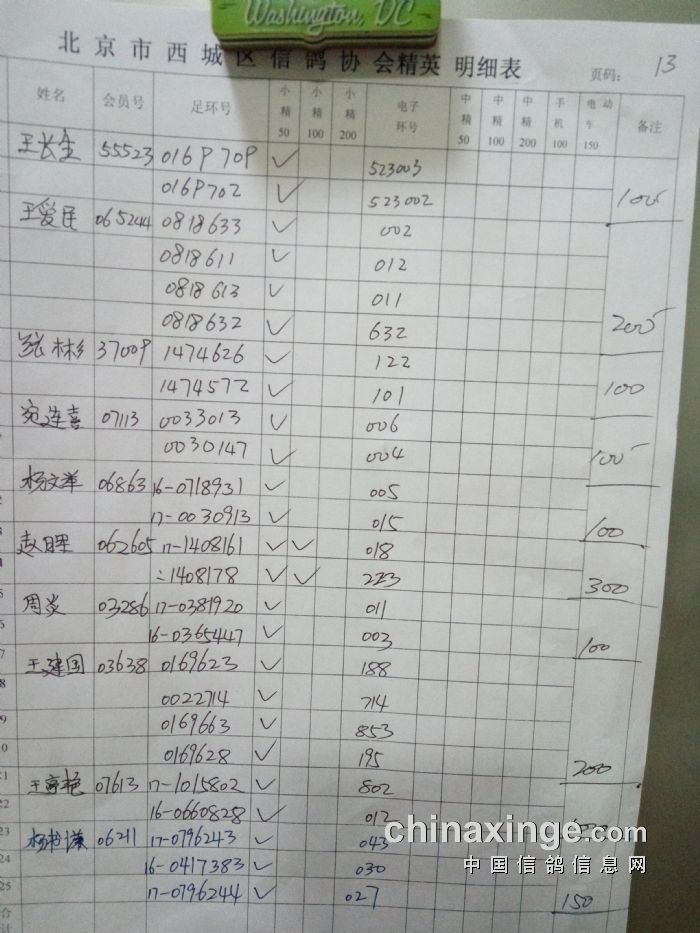 Washington, DC
北京市西城区信鸽协会精英 明细表
页码: 13
姓名 会员号 足环号 小精50 小精100 小精200 电子环号 中精50 中精100 中精200 手机100 电动车150 备注
王长金 55523 016P70P ✓ 523003
016P702 ✓ 523002 100
王爱民 065244 0818633 ✓ 002
0818611 ✓ 012
0818613 ✓ 011
0818632 ✓ 632 200
张彬 3700P 1474626 ✓ 122
1474572 ✓ 101 100
宛连喜 07113 0033013 ✓ 006
0030147 ✓ 004 100
杨文革 06863 16-0718931 ✓ 005
17-0030913 ✓ 015 100
赵日军 062605 17-1408161 ✓ ✓ 018
1408178 ✓ ✓ 223 300
周炎 03286 17-0381920 ✓ 011
16-0365447 ✓ 003 100
王建国 03638 0169623 ✓ 188
0022714 ✓ 714
0169663 ✓ 853
0169628 ✓ 195 200
21 07613 17-1015802 ✓ 802
22 16-0660828 ✓ 012
23 06211 17-0796243 ✓ 043
24 16-0417383 ✓ 030
25 17-0796244 ✓ 027 150
合计
chinaxinge.com
中国信鸽信息网